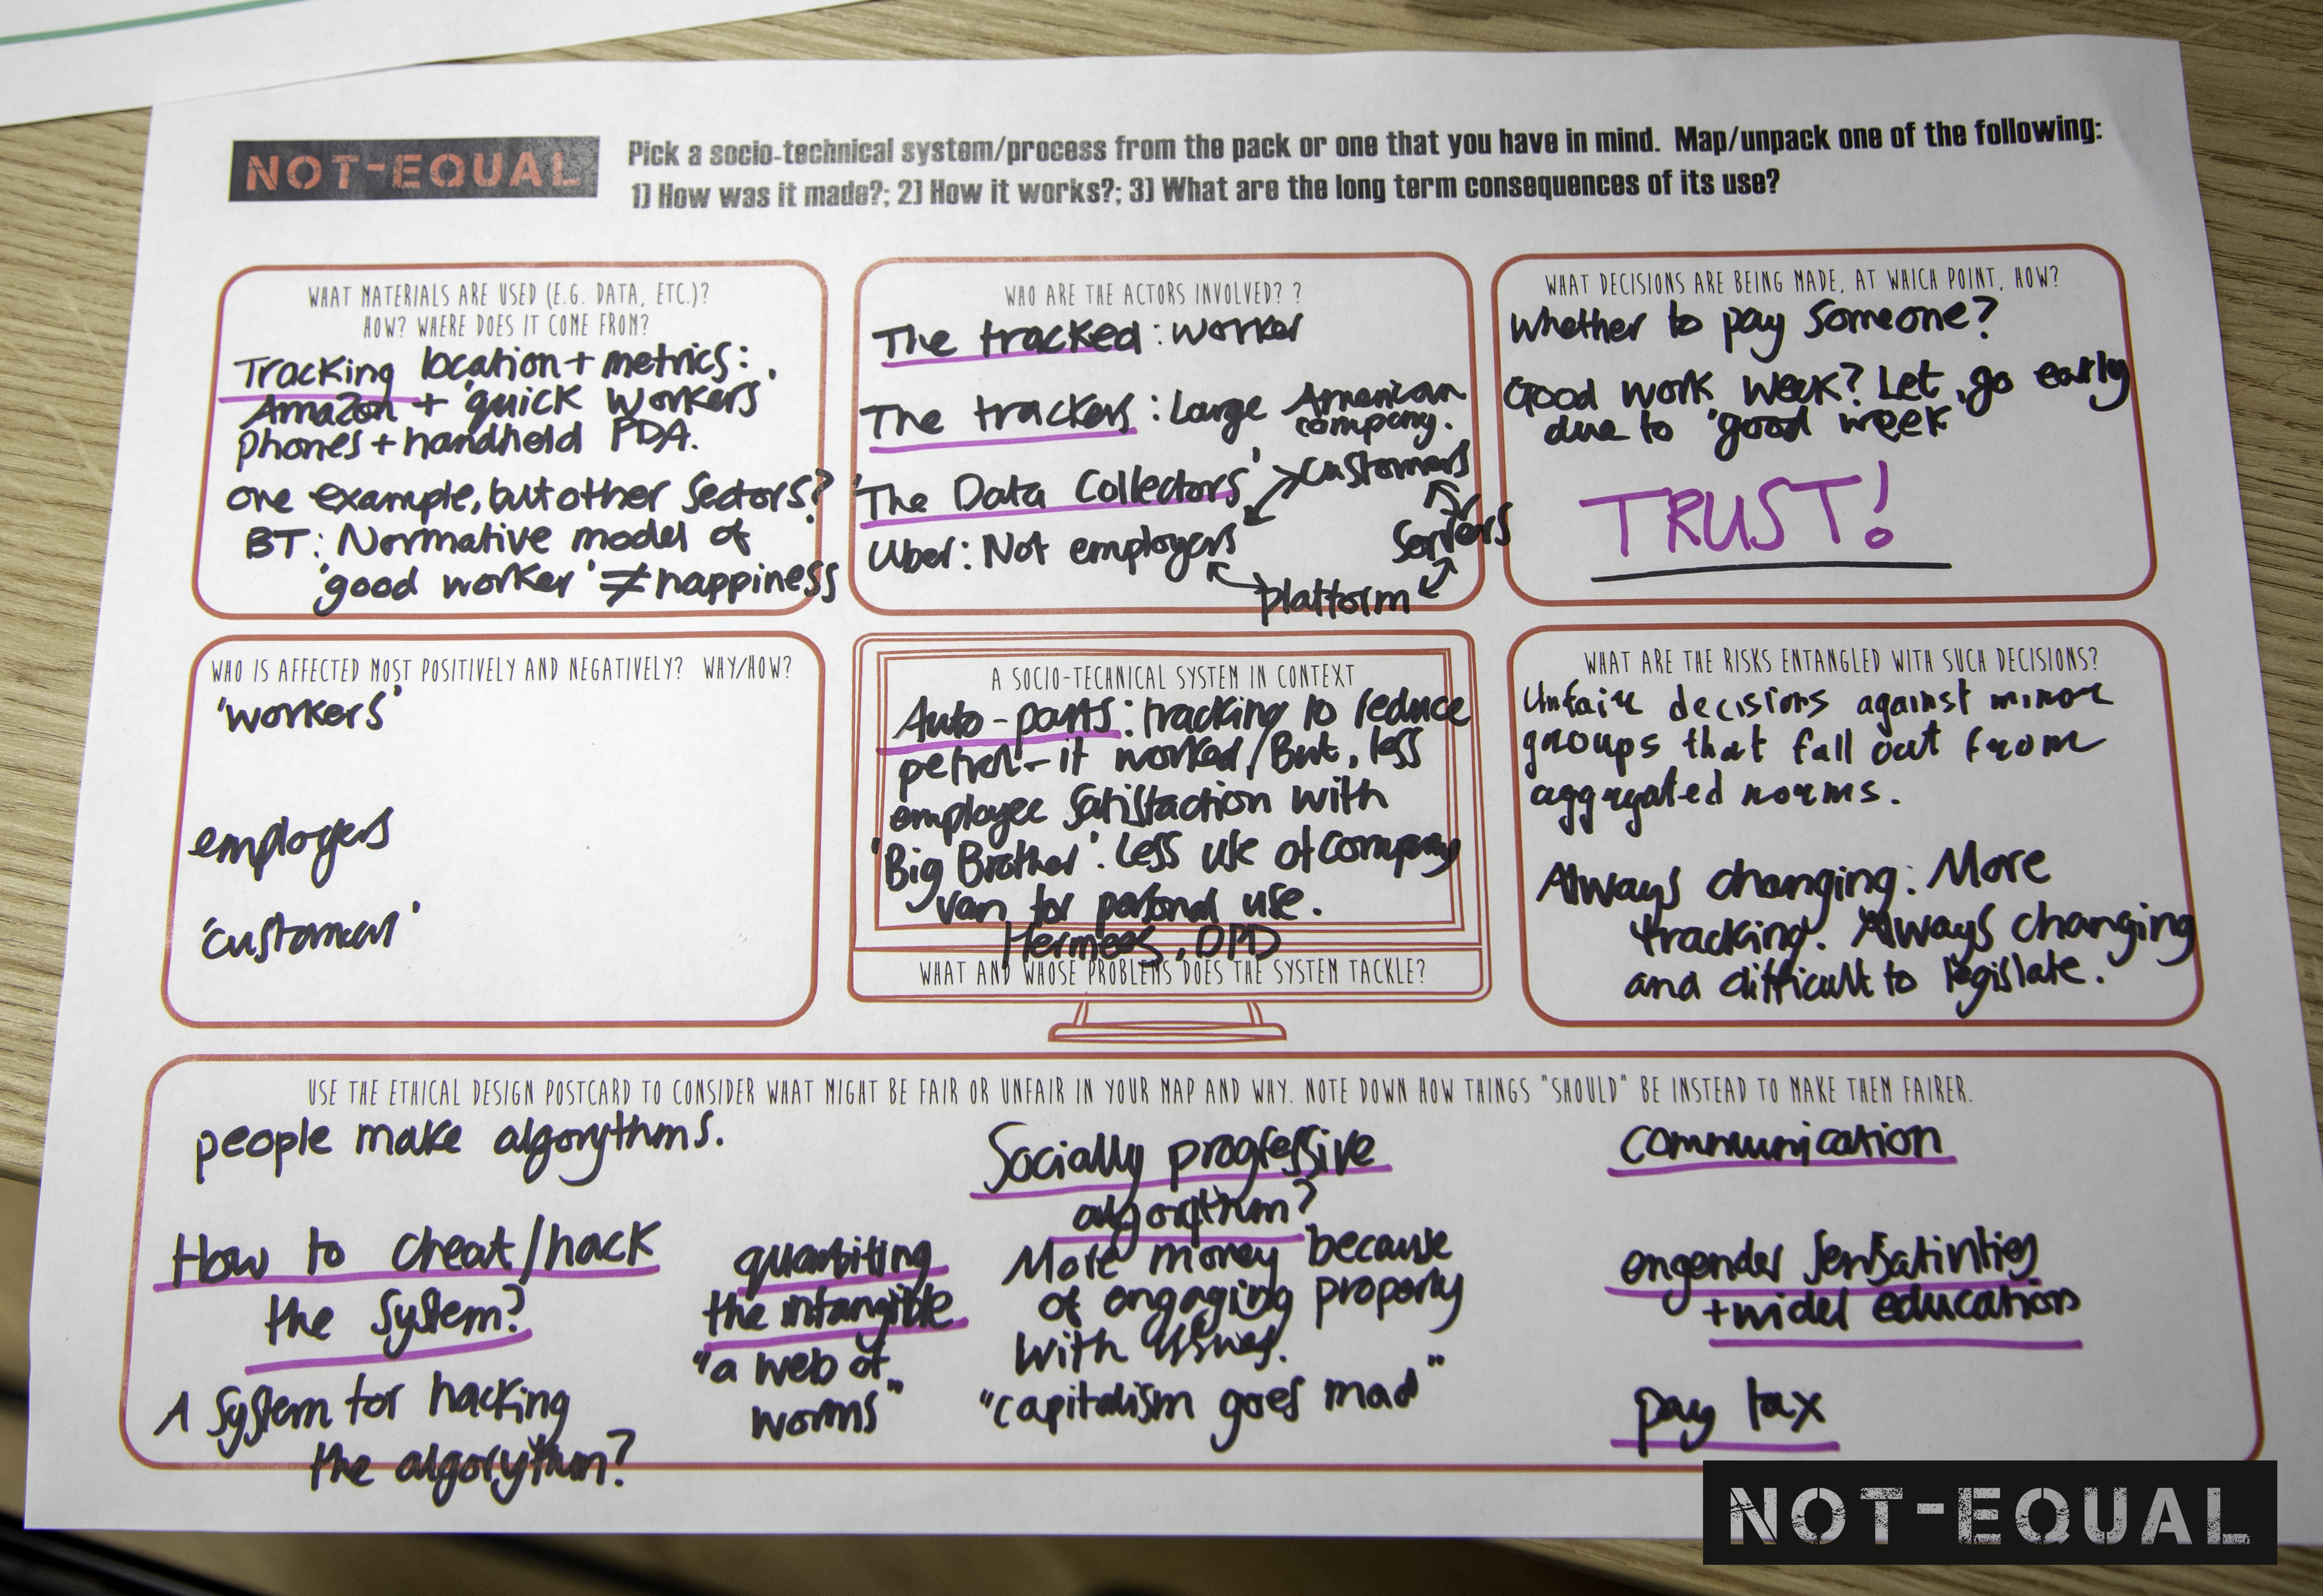 NOT-EQUAL
Pick a socio-technical system/process from the pack or one that you have in mind. Map/unpack one of the following:
1) How was it made?; 2) How it works?; 3) What are the long term consequences of its use?
WHAT MATERIALS ARE USED (E.G. DATA, ETC.)?
HOW? WHERE DOES IT COME FROM?
Tracking location + metrics:
Amazon + 'quick workers'
phones + handheld PDA.
one example, but other sectors?
BT: Normative model of
'good worker' ≠ happiness
WHO ARE THE ACTORS INVOLVED? ?
The tracked: worker
The trackers: Large American
company.
'The Data Collectors' customers
Uber: Not employers
Servers
platform
WHAT DECISIONS ARE BEING MADE, AT WHICH POINT, HOW?
Whether to pay someone?
Good work week? Let go early
due to 'good week'
TRUST!
WHO IS AFFECTED MOST POSITIVELY AND NEGATIVELY? WHY/HOW?
'workers'
employers
'customer'
A SOCIO-TECHNICAL SYSTEM IN CONTEXT
Auto-parts: tracking to reduce
petrol - it worked/But, less
employee satisfaction with
'Big Brother'. Less use of company
van for personal use.
Hermees, DPD
WHAT AND WHOSE PROBLEMS DOES THE SYSTEM TACKLE?
WHAT ARE THE RISKS ENTANGLED WITH SUCH DECISIONS?
Unfair decisions against minor
groups that fall out from
aggregated norms.
Always changing: More
tracking. Always changing
and difficult to legislate.
USE THE ETHICAL DESIGN POSTCARD TO CONSIDER WHAT MIGHT BE FAIR OR UNFAIR IN YOUR MAP AND WHY. NOTE DOWN HOW THINGS "SHOULD" BE INSTEAD TO MAKE THEM FAIRER.
people make algorythms.
How to cheat/hack
the system?
A system for hacking
the algorythm?
the intangible
"a web of
worms"
Socially progressive
algorythm?
More money because
of engaging properly
with issues.
"capitalism goes mad"
communication
engender
+ wider education
pay tax
NOT-EQUAL